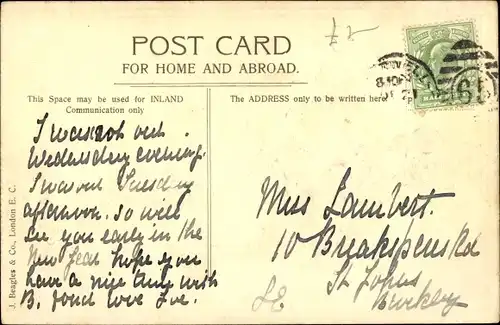 £2
POST CARD
FOR HOME AND ABROAD.
This Space may be used for INLAND
Communication only
The ADDRESS only to be written here
I was not out
Wednesday evening.
I was out Tuesday
afternoon. So will
see you early in the
New Year hope you
have a nice time with
B. fond love
Miss Lambert.
10 Breakspears Rd
St Johns
Brockley
SE
J. Beagles & Co., London E. C.
61